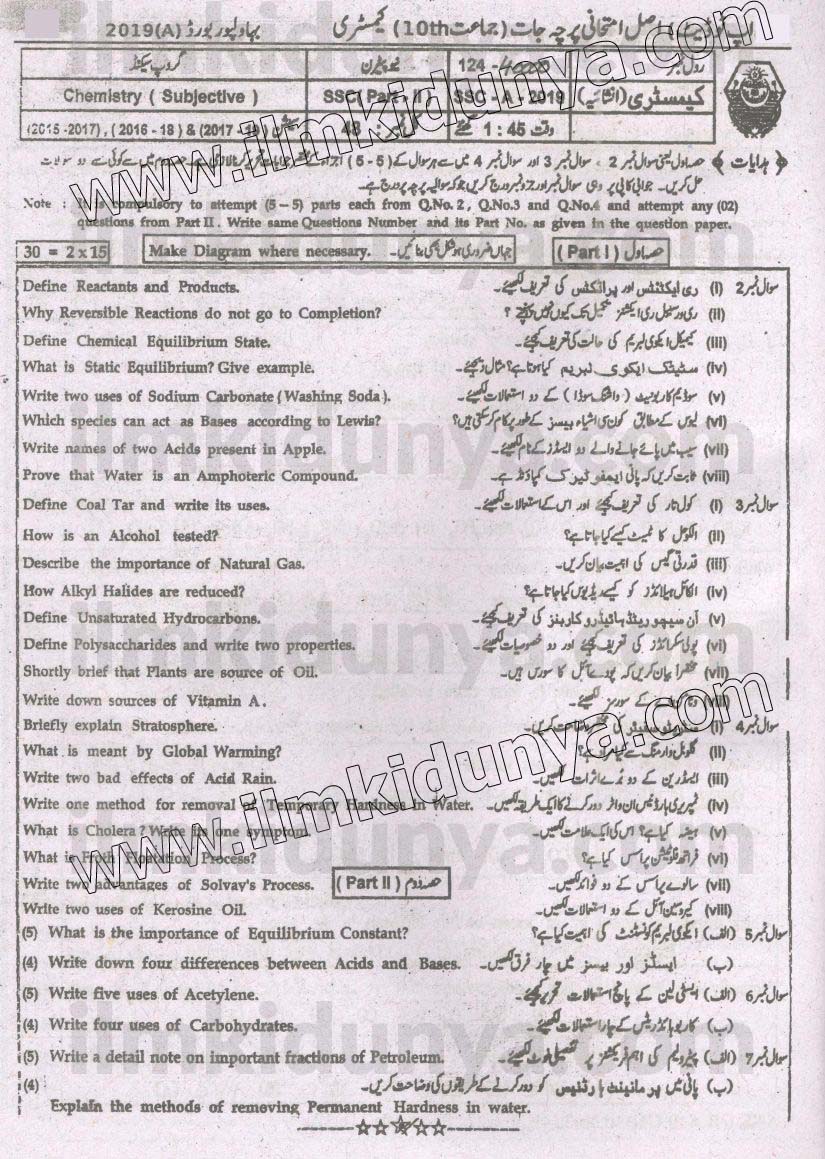 اپ ٹو ڈیٹ اصل امتحانی پرچہ جات (جماعت 10th) کیمسٹری بہاولپور بورڈ 2019(A)
رول نمبر 124 نیو پیٹرن گروپ سیکنڈ
کیمسٹری (انشائیہ) SSC - A - 2019 SSC (Part - II) Chemistry ( Subjective )
وقت 1 : 45 گھنٹے نمبر : 48 سیشن (2015 -2017) , (2016 - 18) & (2017 - 19)
﴿ ہدایات ﴾ حصہ اول یعنی سوال نمبر 2 ، سوال نمبر 3 اور سوال نمبر 4 میں سے ہر سوال کے (5 - 5) اجزاء کے جوابات تحریر کرنا لازمی ہے۔ حصہ دوم میں سے کوئی سے دو سوالات
حل کریں۔ جوابی کاپی پر وہی سوال نمبر اور جزو نمبر درج کریں جو کہ سوالیہ پرچہ پر درج ہے۔
Note : It is compulsory to attempt (5 – 5) parts each from Q.No. 2 , Q.No.3 and Q.No.4 and attempt any (02)
questions from Part II . Write same Questions Number and its Part No. as given in the question paper.
30 = 2 x 15 Make Diagram where necessary. جہاں ضروری ہو شکل بھی بنائیں۔ حصہ اول ( Part I )
Define Reactants and Products. سوال نمبر 2 (i) ری ایکٹنٹس اور پراڈکٹس کی تعریف لکھیئے۔
Why Reversible Reactions do not go to Completion? (ii) ریورسیبل ری ایکشنز تکمیل تک کیوں نہیں پہنچتے ؟
Define Chemical Equilibrium State. (iii) کیمیکل ایکوی لبریم کی حالت کی تعریف کیجئے۔
What is Static Equilibrium? Give example. (iv) سٹیٹک ایکوی لبریم کیا ہوتا ہے؟ مثال دیجئے۔
Write two uses of Sodium Carbonate (Washing Soda). (v) سوڈیم کاربونیٹ ( واشنگ سوڈا ) کے دو استعمالات لکھیئے۔
Which species can act as Bases according to Lewis? (vi) لیوس کے مطابق کون سی اشیاء بیسز کے طور پر کام کر سکتی ہیں؟
Write names of two Acids present in Apple. (vii) سیب میں پائے جانے والے دو ایسڈز کے نام لکھیئے۔
Prove that Water is an Amphoteric Compound. (viii) ثابت کریں کہ پانی ایمفوٹیرک کمپاؤنڈ ہے۔
Define Coal Tar and write its uses. سوال نمبر 3 (i) کول تار کی تعریف کیجئے اور اس کے استعمالات لکھیئے۔
How is an Alcohol tested? (ii) الکوحل کا ٹیسٹ کیسے کیا جاتا ہے؟
Describe the importance of Natural Gas. (iii) قدرتی گیس کی اہمیت بیان کریں۔
How Alkyl Halides are reduced? (iv) الکائل ہیلائڈز کو کیسے ریڈیوس کیا جاتا ہے؟
Define Unsaturated Hydrocarbons. (v) ان سیچوریٹڈ ہائیڈروکاربنز کی تعریف کیجئے۔
Define Polysaccharides and write two properties. (vi) پولی سکرائڈز کی تعریف کیجئے اور دو خصوصیات لکھیئے۔
Shortly brief that Plants are source of Oil. (vii) مختصراً بیان کریں کہ پودے آئل کا سورس ہیں۔
Write down sources of Vitamin A. (viii) کے سورسز لکھیئے۔
Briefly explain Stratosphere. سوال نمبر 4 (i) سٹریٹوسفیئر کی مختصر وضاحت کریں۔
What is meant by Global Warming? (ii) گلوبل وارمنگ سے کیا مراد ہے؟
Write two bad effects of Acid Rain. (iii) ایسڈ رین کے دو بُرے اثرات لکھیں۔
Write one method for removal of Temporary Hardness in Water. (iv) ٹمپریری ہارڈنیس ان واٹر دور کرنے کا ایک طریقہ لکھیں۔
What is Cholera? Write its one symptom. (v) ہیضہ کیا ہے؟ اس کی ایک علامت لکھیں۔
What is Froth Floatation Process? (vi) فراتھ فلوٹیشن پراسس کیا ہے؟
Write two advantages of Solvay's Process. (vii) سالوے پراسس کے دو فوائد لکھیں۔
( Part II ) حصہ دوم
Write two uses of Kerosine Oil. (viii) کیروسین آئل کے دو استعمالات لکھیں۔
(5) What is the importance of Equilibrium Constant? سوال نمبر 5 (الف) ایکوی لبریم کونسٹنٹ کی اہمیت کیا ہے؟
(4) Write down four differences between Acids and Bases. (ب) ایسڈز اور بیسز میں چار فرق لکھیں۔
(5) Write five uses of Acetylene. سوال نمبر 6 (الف) ایسٹی لین کے پانچ استعمالات تحریر کیجئے۔
(4) Write four uses of Carbohydrates. (ب) کاربوہائڈریٹس کے چار استعمالات لکھیئے۔
(5) Write a detail note on important fractions of Petroleum. سوال نمبر 7 (الف) پیٹرولیم کی اہم فریکشنز پر تفصیلی نوٹ لکھیئے۔
(4) (ب) پانی میں پرمانینٹ ہارڈنیس کو دور کرنے کے طریقوں کی وضاحت کریں۔
Explain the methods of removing Permanent Hardness in water.
www.ilmkidunya.com
www.ilmkidunya.com
ilmkidunya.com
ilmkidunya.com
ilmkidunya.com
ilmkidunya.com
ilmkidunya.com